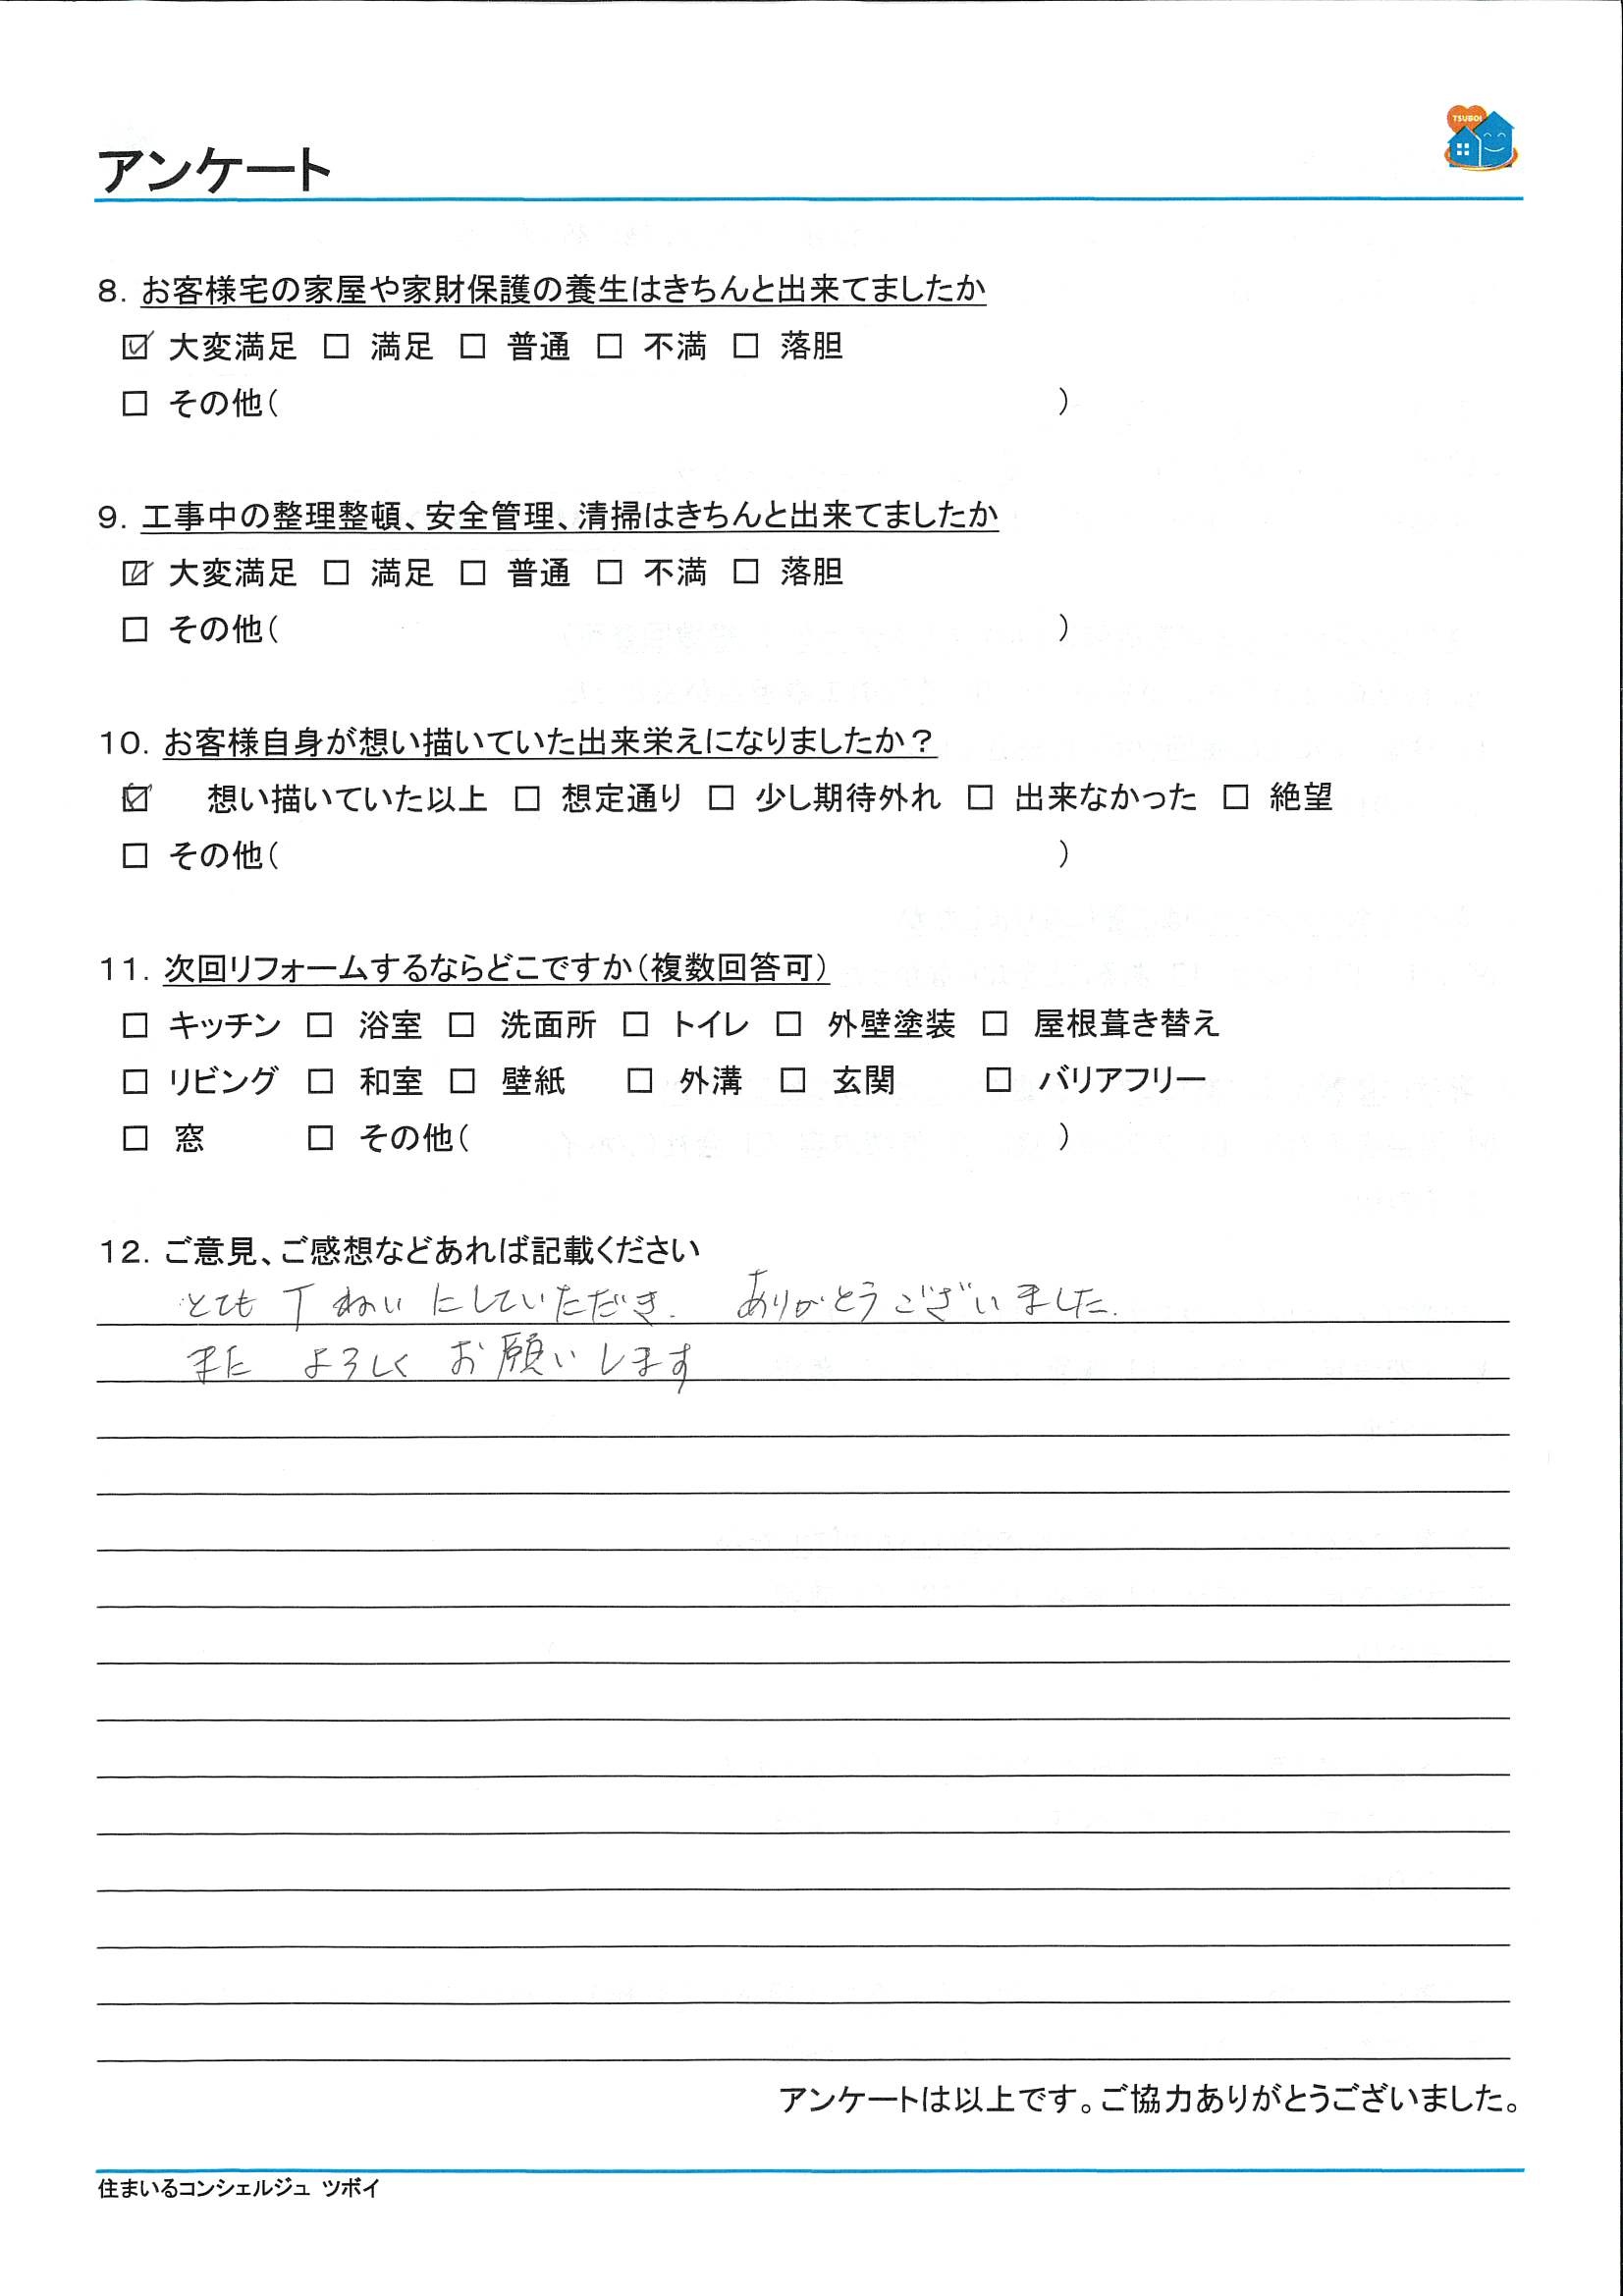 TSUBOI
アンケート
8. お客様宅の家屋や家財保護の養生はきちんと出来てましたか
☑ 大変満足 □ 満足 □ 普通 □ 不満 □ 落胆
□ その他( )
9. 工事中の整理整頓、安全管理、清掃はきちんと出来てましたか
☑ 大変満足 □ 満足 □ 普通 □ 不満 □ 落胆
□ その他( )
10. お客様自身が想い描いていた出来栄えになりましたか？
☑ 想い描いていた以上 □ 想定通り □ 少し期待外れ □ 出来なかった □ 絶望
□ その他( )
11. 次回リフォームするならどこですか(複数回答可)
□ キッチン □ 浴室 □ 洗面所 □ トイレ □ 外壁塗装 □ 屋根葺き替え
□ リビング □ 和室 □ 壁紙 □ 外溝 □ 玄関 □ バリアフリー
□ 窓 □ その他( )
12. ご意見、ご感想などあれば記載ください
とても丁ねいにしていただき、ありがとうございました。
また よろしく お願いします
アンケートは以上です。ご協力ありがとうございました。
住まいるコンシェルジュ ツボイ